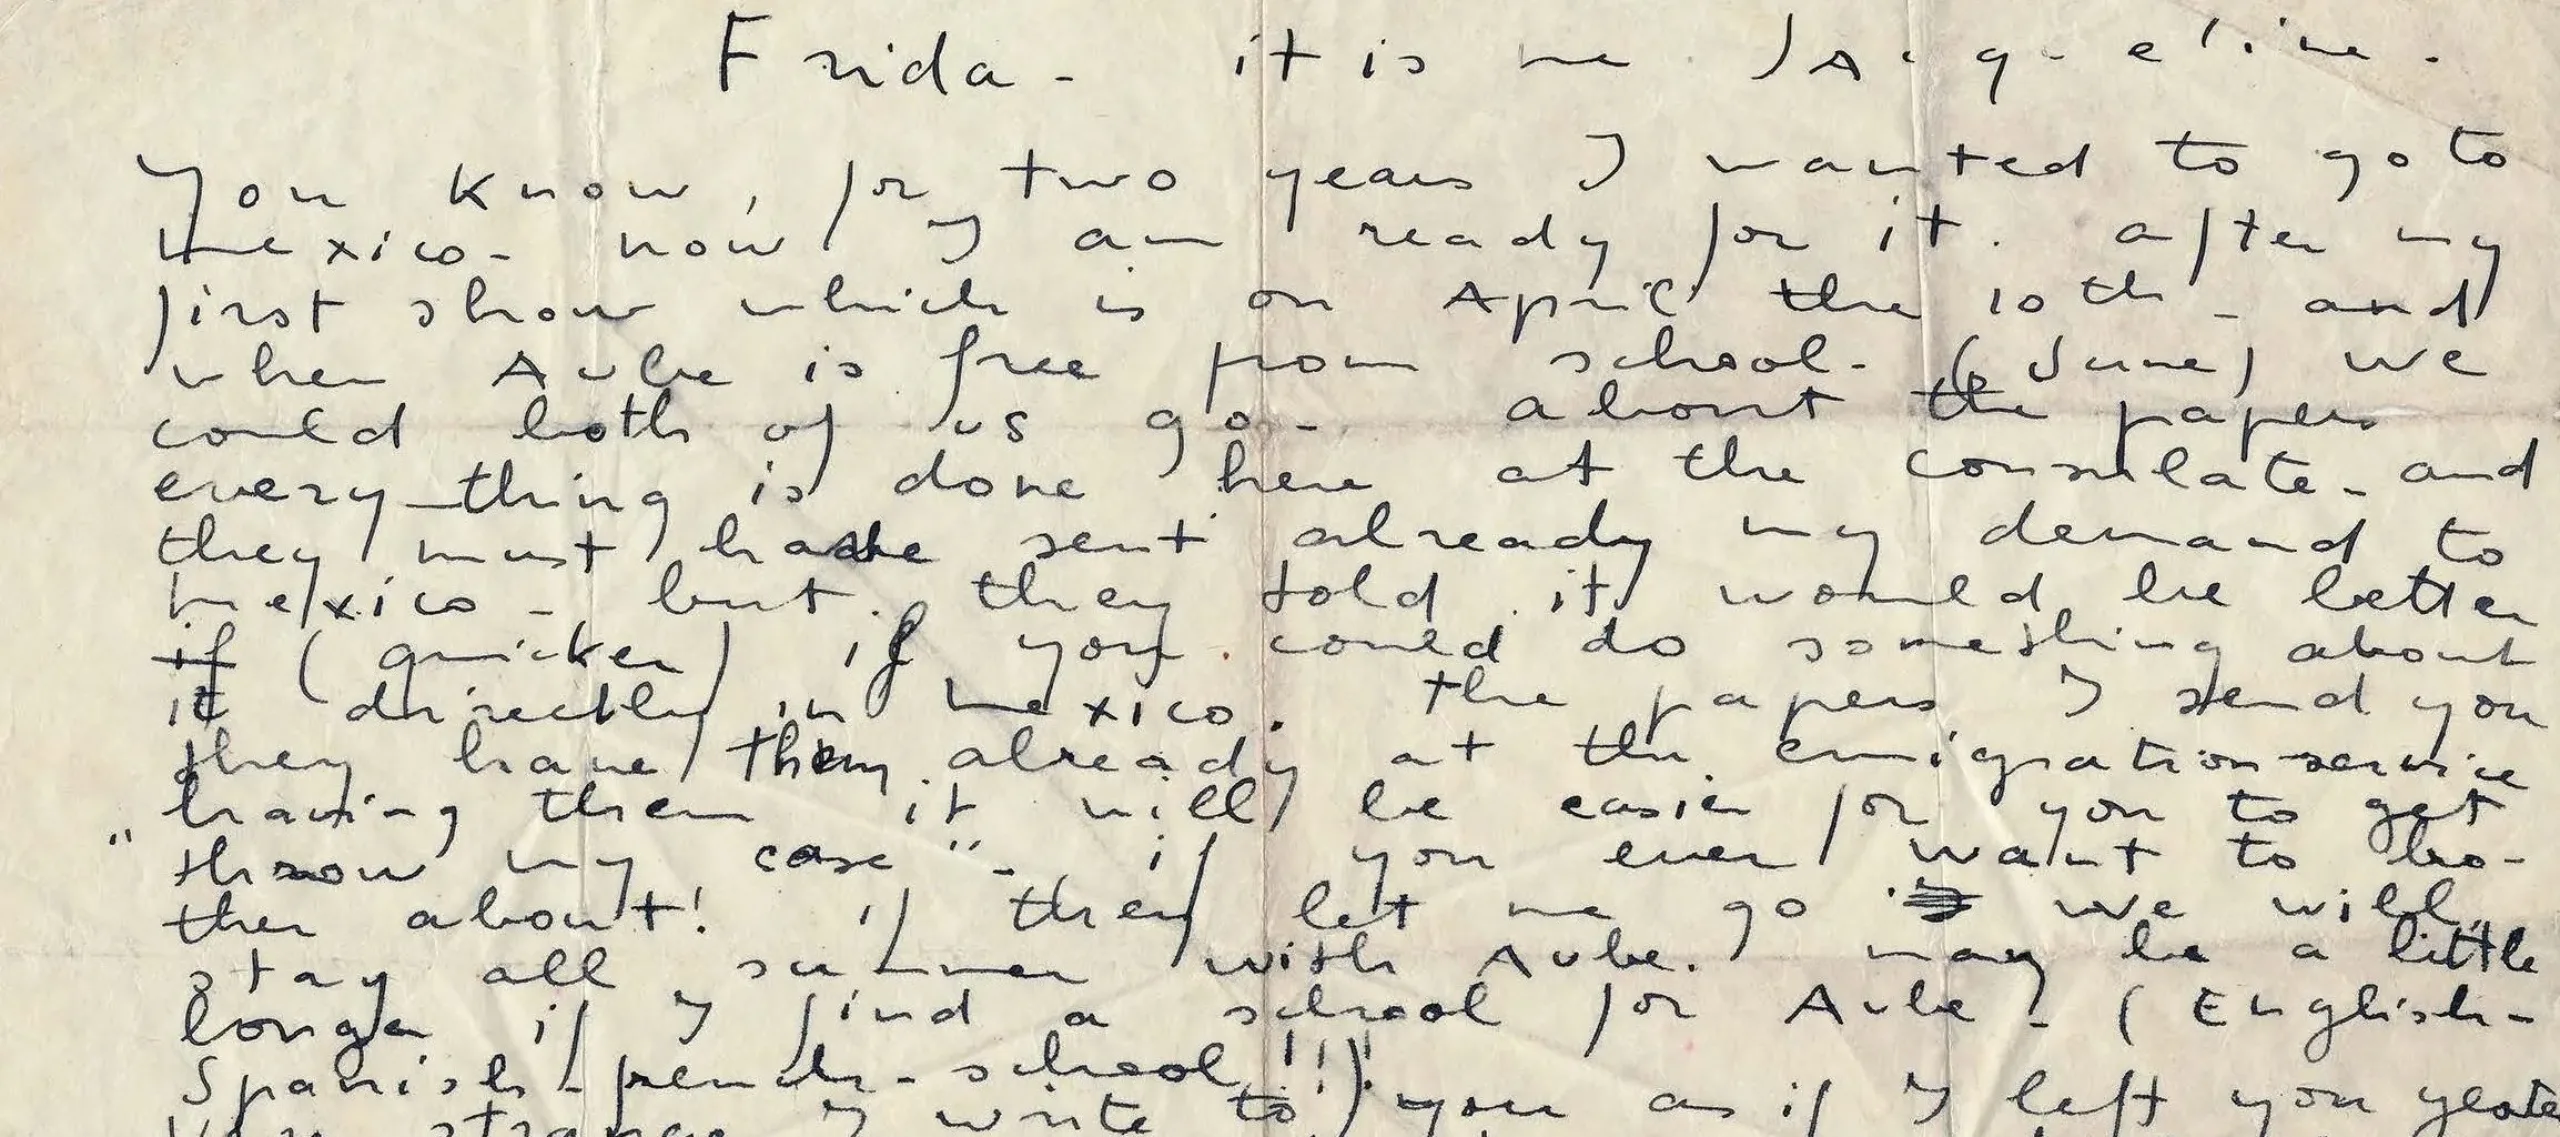 Frida - it is me Jacqueline.
You know, for two years I wanted to go to
Mexico - now I am ready for it. after my
first show which is on April the 10th - and
when Aube is free from school - (June) we
could both of us go - about the papers
every-thing is done here at the consulate - and
they must have sent already my demand to
Mexico - but they told it would be better
if (quicker) if you could do something about
it directly in Mexico. the papers I send you
they have them already at the emigration-service
having them it will be easier for you to get
"throw my case" - if you ever want to bo-
ther about! if they let me go we will
stay all summer with Aube. may be a little
longer if I find a school for Aube - (English-
Spanish-french-school!!!) you as if I left you yeste
Very strange I write to